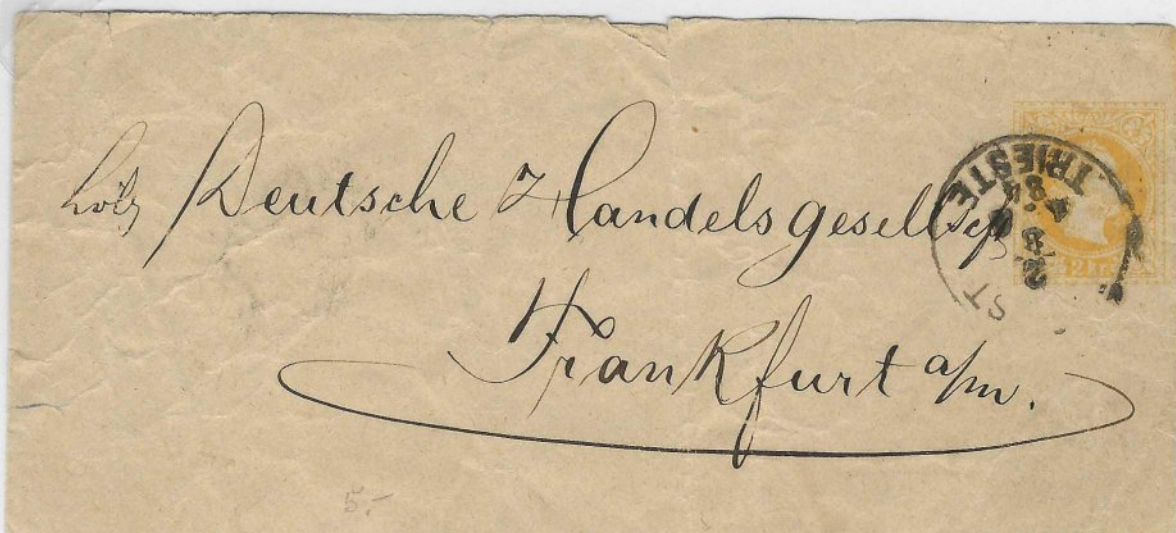 löbl Deutsche Handelsgesellsch
Frankfurt a/m.
TRIESTE
84
2 Kr.
ST
5.-